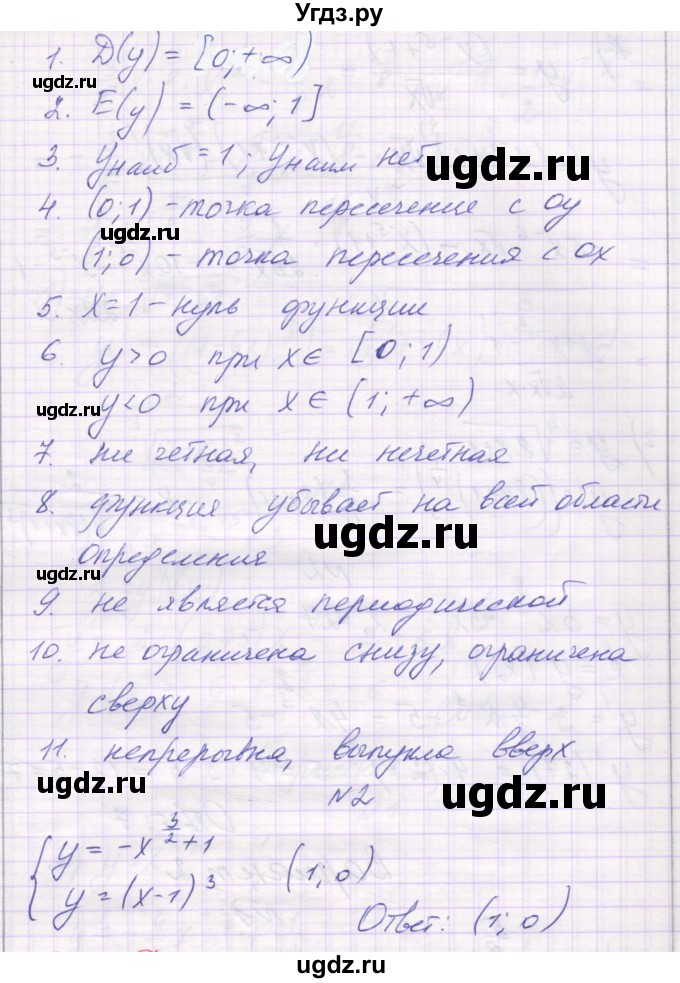 Угдз.ру
1. D(y) = [0; +∞)
2. E(y) = (-∞; 1]
3. yнаиб = 1; yнаим нет
4. (0; 1) - точка пересечение с оу
(1; 0) - точка пересечения с ох
5. x = 1 - нуль функции
6. y > 0 при x ∈ [0; 1)
y < 0 при x ∈ (1; +∞)
7. ни четная, ни нечетная
8. функция убывает на всей области
определения
9. не является периодической
10. не ограничена снизу, ограничена
сверху
11. непрерывна, выпукла вверх
N2
{ y = -x^(3/2) + 1
y = (x-1)^3 (1; 0)
Ответ: (1; 0)
ugdz.ru
ugdz.ru
ugdz.ru
ugdz.ru
ugdz.ru
ugdz.ru
ugdz.ru
ugdz.ru
ugdz.ru
ugdz.ru
ugdz.ru